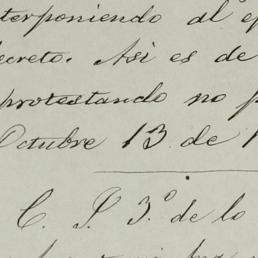 terponiendo al ef
ecreto. Así es de
protestando no p
Octubre 13. de 1
C. J. 3.º de lo